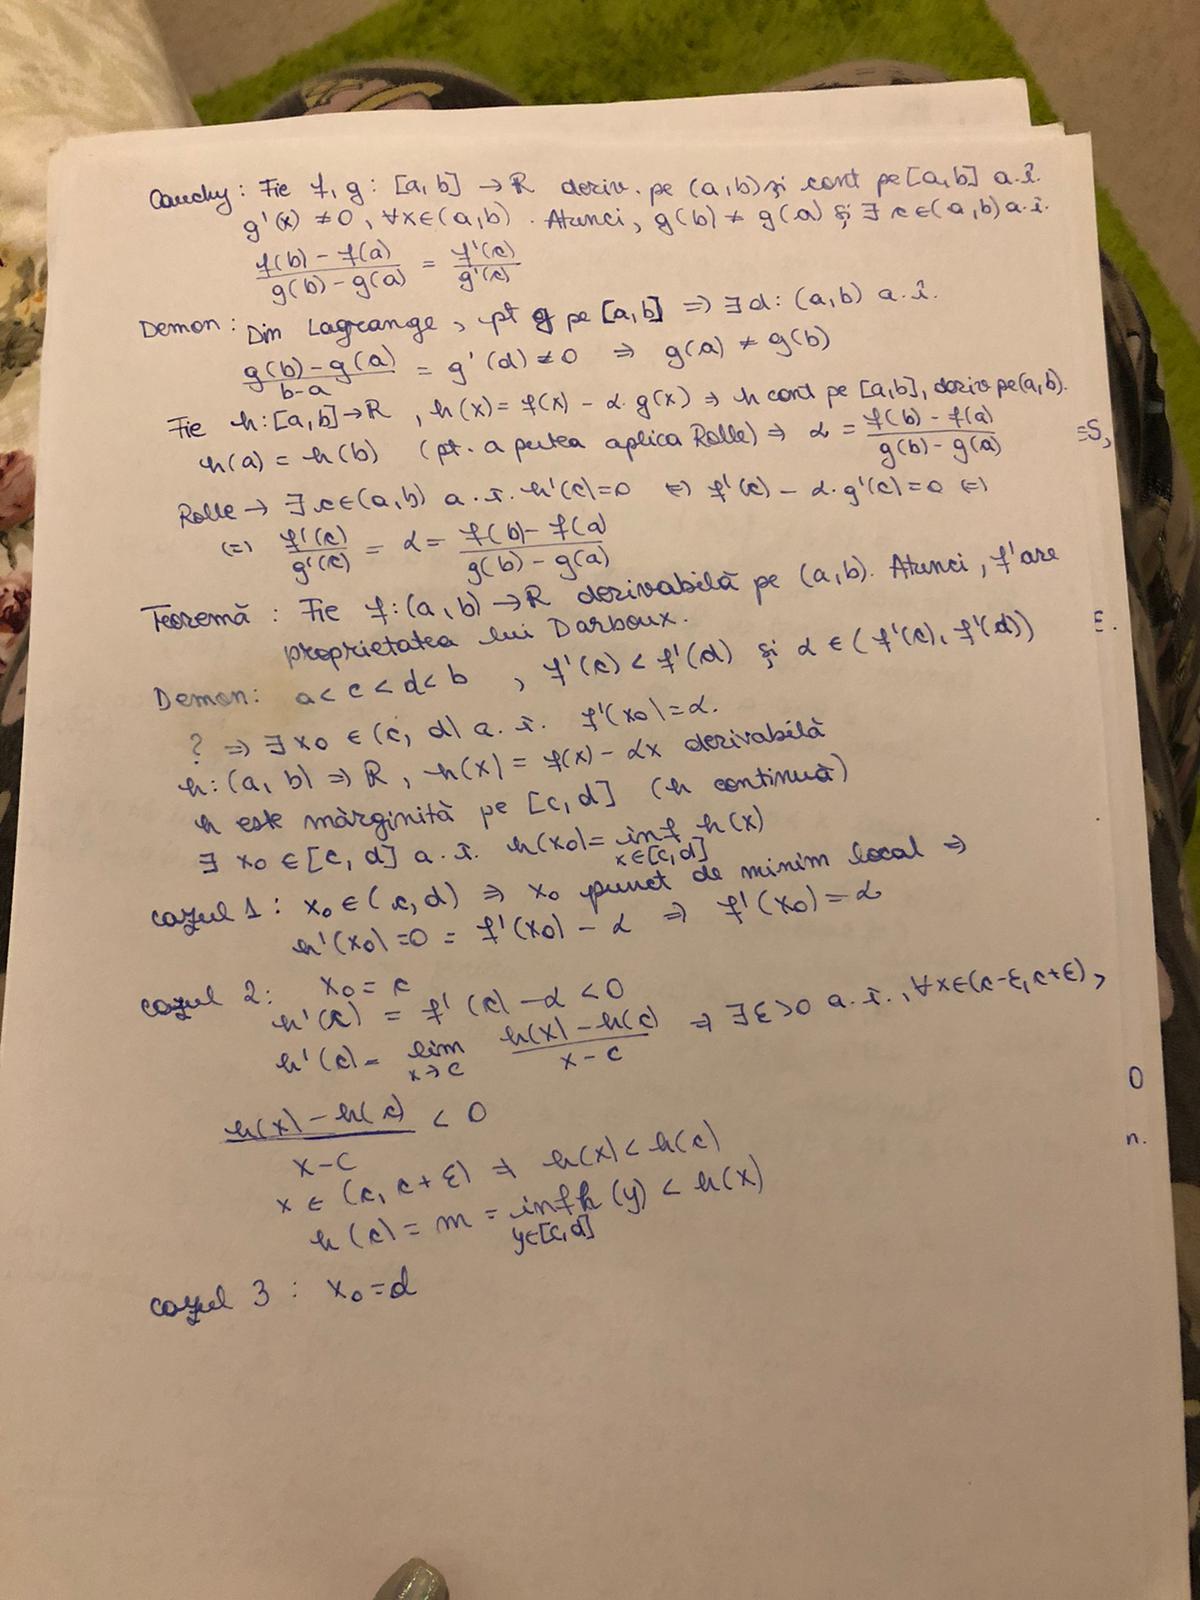 Cauchy: Fie f, g : [a, b] → R deriv. pe (a, b) și cont pe [a, b] a.î.
g'(x) ≠ 0, ∀x∈(a, b). Atunci, g(b) ≠ g(a) și ∃ c∈(a, b) a.î.
(f(b) - f(a))/(g(b) - g(a)) = f'(c)/g'(c)
Demon: Din Lagrange, pt g pe [a, b] ⇒ ∃ d: (a, b) a.î.
(g(b) - g(a))/(b-a) = g'(d) ≠ 0 ⇒ g(a) ≠ g(b)
Fie h: [a, b] → R, h(x) = f(x) - α·g(x) ⇒ h cont pe [a, b], deriv pe (a, b).
h(a) = h(b) (pt. a putea aplica Rolle) ⇒ α = (f(b) - f(a))/(g(b) - g(a))
Rolle → ∃ c∈(a, b) a.î. h'(c)=0 ⇔ f'(c) - α·g'(c) = 0 ⇔
⇔ f'(c)/g'(c) = α = (f(b) - f(a))/(g(b) - g(a))
Teoremă: Fie f: (a, b) → R derivabilă pe (a, b). Atunci, f' are
proprietatea lui Darboux.
Demon: a < c < d < b, f'(c) < f'(d) și α ∈ (f'(c), f'(d))
? ⇒ ∃ x₀ ∈ (c, d) a.î. f'(x₀) = α.
h: (a, b) ⇒ R, h(x) = f(x) - αx derivabilă
h este mărginită pe [c, d] (h continuă)
∃ x₀ ∈ [c, d] a.î. h(x₀) = inf h(x)
x∈[c, d]
cazul 1: x₀ ∈ (c, d) ⇒ x₀ punct de minim local ⇒
h'(x₀) = 0 = f'(x₀) - α ⇒ f'(x₀) = α
cazul 2: x₀ = c
h'(c) = f'(c) - α < 0
h'(c) = lim (h(x) - h(c))/(x - c) ⇒ ∃ε>0 a.î., ∀x∈(c-ε, c+ε),
x→c
(h(x) - h(c))/(x-c) < 0
x ∈ (c, c+ε) ⇒ h(x) < h(c)
h(c) = m = inf h(y) < h(x)
y∈[c, d]
cazul 3: x₀ = d